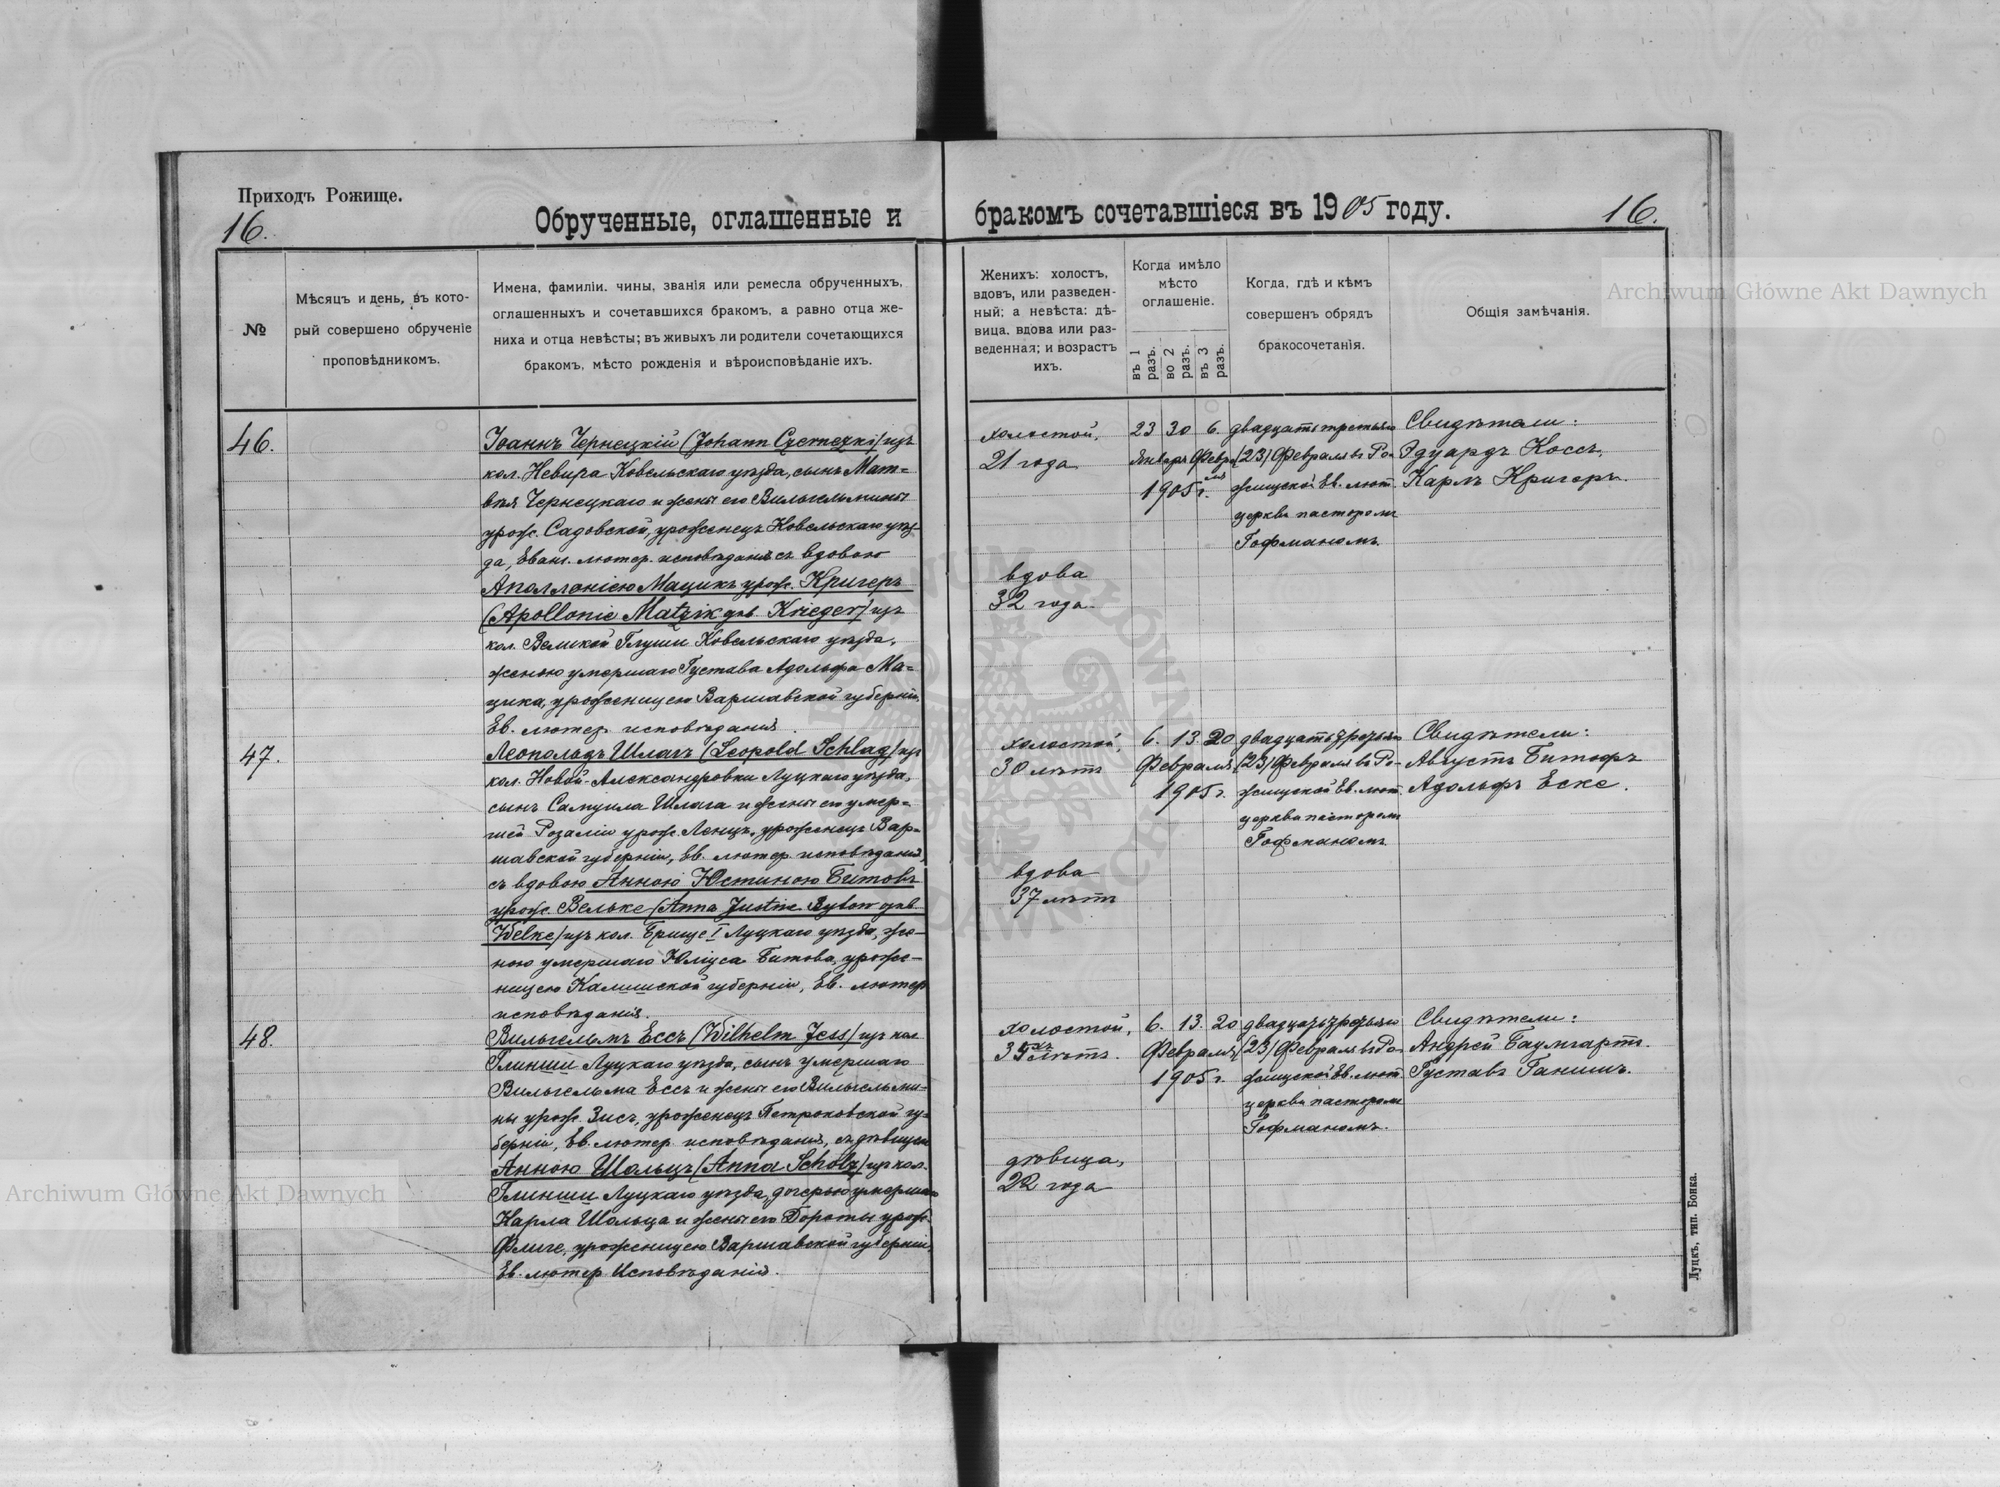 Приходъ Рожище.
16.
Обрученные, оглашенные и
бракомъ сочетавшіеся въ 1905 году.
16.
№
Мѣсяцъ и день, въ кото-
рый совершено обрученіе
проповѣдникомъ.
Имена, фамиліи, чины, званія или ремесла обрученныхъ,
оглашенныхъ и сочетавшихся бракомъ, а равно отца же-
ниха и отца невѣсты; въ живыхъ ли родители сочетающихся
бракомъ, мѣсто рожденія и вѣроисповѣданіе ихъ.
Женихъ: холостъ,
вдовъ, или разведен-
ный; а невѣста: дѣ-
вица, вдова или раз-
веденная; и возрастъ
ихъ.
Когда имѣло
мѣсто
оглашеніе.
въ 1 разъ.
во 2 разъ.
въ 3 разъ.
Когда, гдѣ и кѣмъ
совершенъ обрядъ
бракосочетанія.
Общія замѣчанія.
46.
Іоаннъ Чернецкій (Johann Czernezki) изъ
кол. Невира Ковельскаго уѣзда, сынъ Мат-
вѣя Чернецкаго и жены его Вильгельмины
урож. Садовской, уроженецъ Ковельскаго уѣз-
да, Еванг. лютер. исповѣданія съ вдовою
Аполлоніею Мацикъ урож. Кригеръ
(Apollonie Matzik geb. Krieger) изъ
кол. Великой Глуши Ковельскаго уѣзда,
женою умершаго Густава Адольфа Ма-
цика, уроженицею Варшавской губерніи,
Ев. лютер. исповѣданія.
холостой,
21 года.
вдова
32 года.
23 30 6.
Января Февраля
1905 г.
двадцать третьяго
(23) Февраля въ Ро-
жищской Ев. лют.
церкви пасторомъ
Гофманомъ.
Свидѣтели:
Эдуардъ Коссъ,
Карлъ Кригеръ.
47.
Леопольдъ Шлагъ (Leopold Schlag) изъ
кол. Новой-Александровки Луцкаго уѣзда,
сынъ Самуила Шлага и жены его умер-
шей Розаліи урож. Ленцъ, уроженецъ Вар-
шавской губерніи, Ев. лютер. исповѣданія,
съ вдовою Анною Юстиною Битовъ
урож. Вельке (Anna Justine Bytow geb.
Welke) изъ кол. Брище I Луцкаго уѣзда, же-
ною умершаго Юліуса Битова, уроже-
ницею Калишской губерніи, Ев. лютер
исповѣданія.
холостой,
30 лѣтъ
вдова
37 лѣтъ
6. 13. 20
Февраля
1905 г.
двадцать третьяго
(23) Февраля въ Ро-
жищской Ев. лют.
церкви пасторомъ
Гофманомъ.
Свидѣтели:
Августъ Битофъ
Адольфъ Еске.
48.
Вильгельмъ Ессъ (Wilhelm Jess) изъ кол
Глинши Луцкаго уѣзда, сынъ умершаго
Вильгельма Ессъ и жены его Вильгельми-
ны урож. Зисъ, уроженецъ Петроковской гу-
берніи, Ев. лютер. исповѣданія, съ дѣвицею
Анною Шольцъ (Anna Scholz) изъ кол.
Глинши Луцкаго уѣзда, дочерью умершаго
Карла Шольца и жены его Дороты урож.
Флиге, уроженицею Варшавской губерніи,
Ев. лютер Исповѣданія.
холостой,
лѣтъ.
дѣвица,
22 года
6. 13. 20
Февраля
1905 г.
двадцать третьяго
(23) Февраля въ Ро-
жищской Ев. лют
церкви пасторомъ
Гофманомъ.
Свидѣтели:
Андрей Баумгартъ.
Густавъ Ганишъ.
Луцкъ, тип. Бонка.
Archiwum Główne Akt Dawnych
Archiwum Główne Akt Dawnych